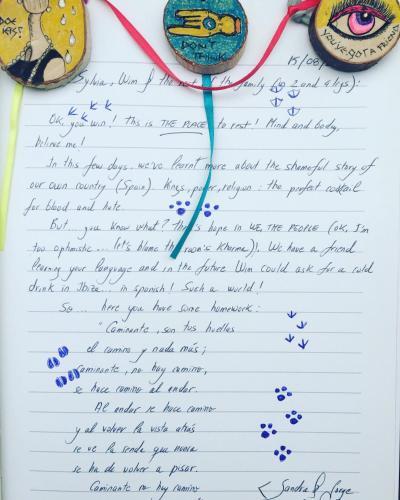 DOE
IETS!
DON'T
THINK
YOU'VE GOT A FRIEND
15/08/
Sylvia, Wim & the rest of the family (2 and 4 legs):
OK, you win! This is THE PLACE to rest! Mind and body,
believe me!
In this few days we've learnt more about the shameful story of
our own country (Spain). Kings, power, religion: the perfect cocktail
for blood and hate.
But... you know what? There's hope in WE, THE PEOPLE (OK, I'm
too optimistic... let's blame the room's Kharma)). We have a friend
learning your language and in the future Wim could ask for a cold
drink in Ibiza... in spanish! Such a world!
So... here you have some homework:
"Caminante, son tus huellas
el camino y nada más;
caminante, no hay camino,
se hace camino al andar.
Al andar se hace camino
y al volver la vista atrás
se ve la senda que nunca
se ha de volver a pisar.
Caminante no hay camino
Sandra & Jorge